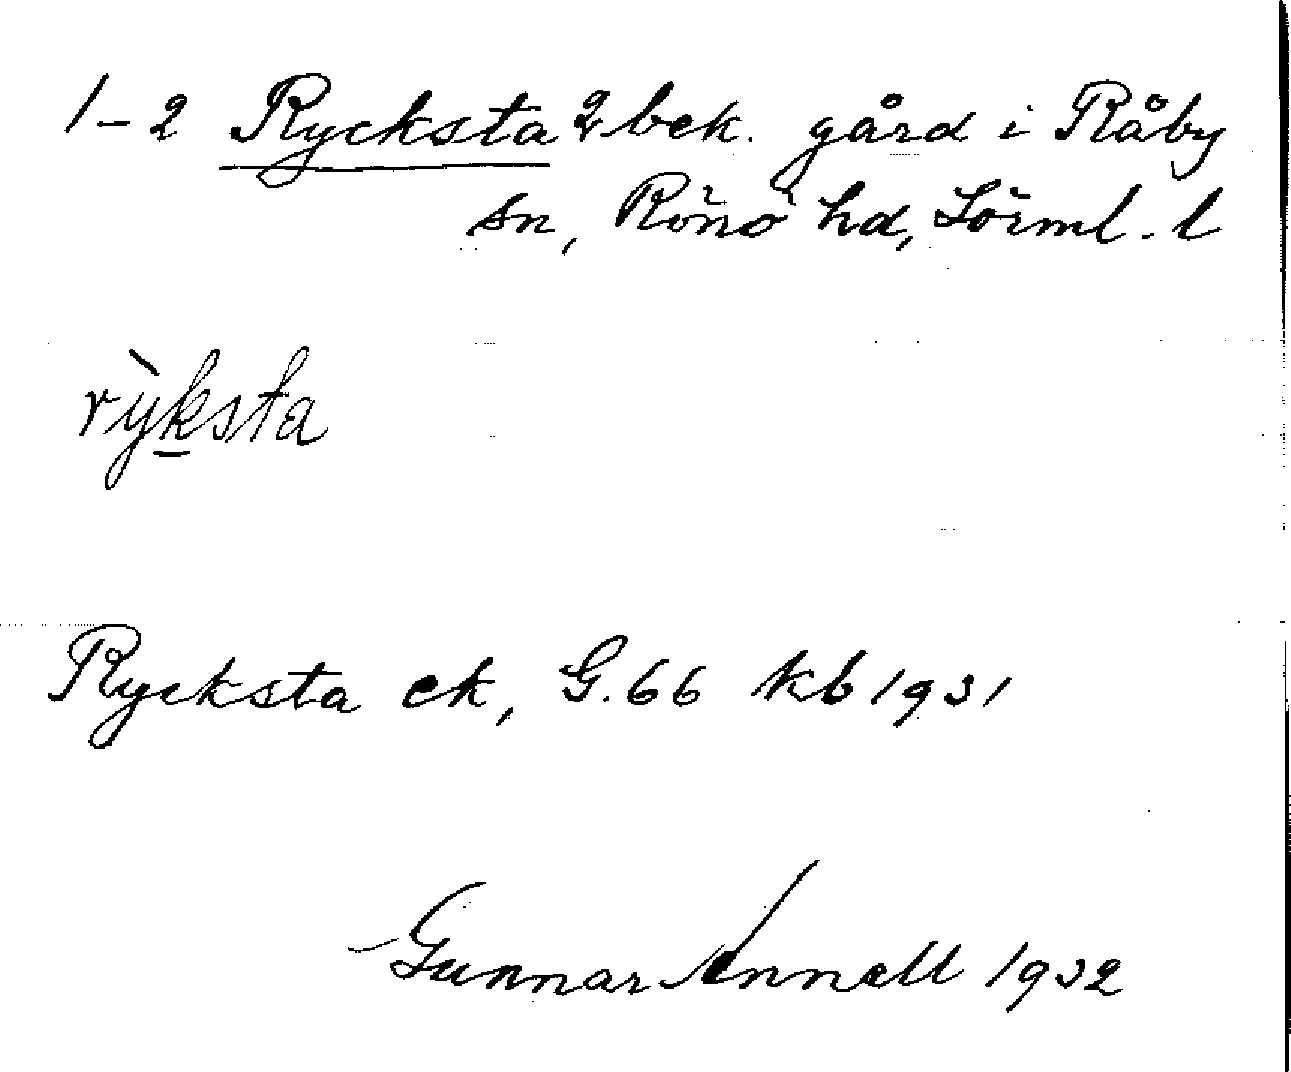 1-2 Rycksta 2 bek. gård i Råby
sn, Rönö hd, Sörml. l
rỳksta
Rycksta ek, G.66 kb 1931
Gunnar Annell 1932